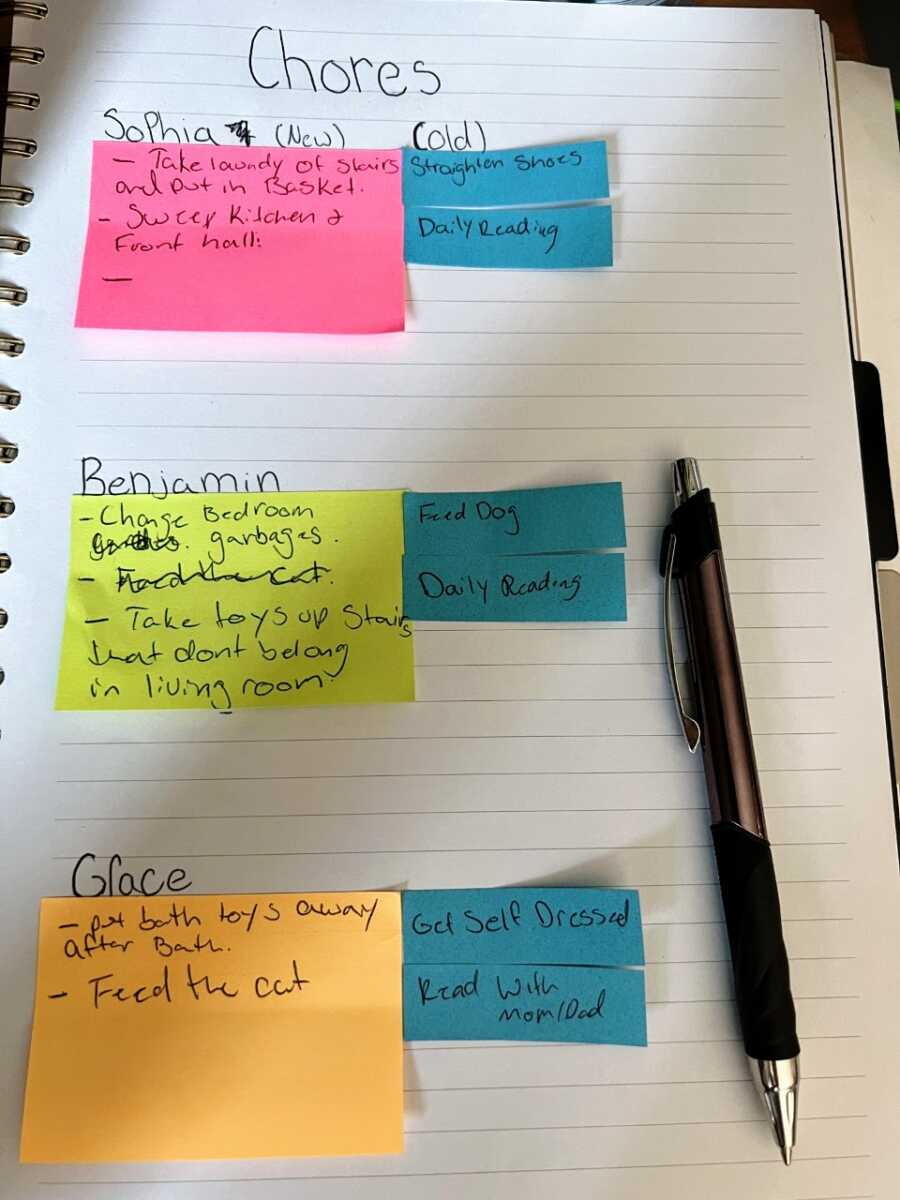 Chores
Sophia (New) (old)
- Take laundy of stairs
and put in Basket.
- Sweep Kitchen &
Front hall.
-
Straighten Shoes
Daily Reading
Benjamin
- Change Bedroom
garbages.
- Feed the cat.
- Take toys up stairs
that dont belong
in living room.
Feed Dog
Daily Reading
Grace
- put bath toys away
after Bath.
- Feed the cat
Get Self Dressed
Read With
Mom/Dad